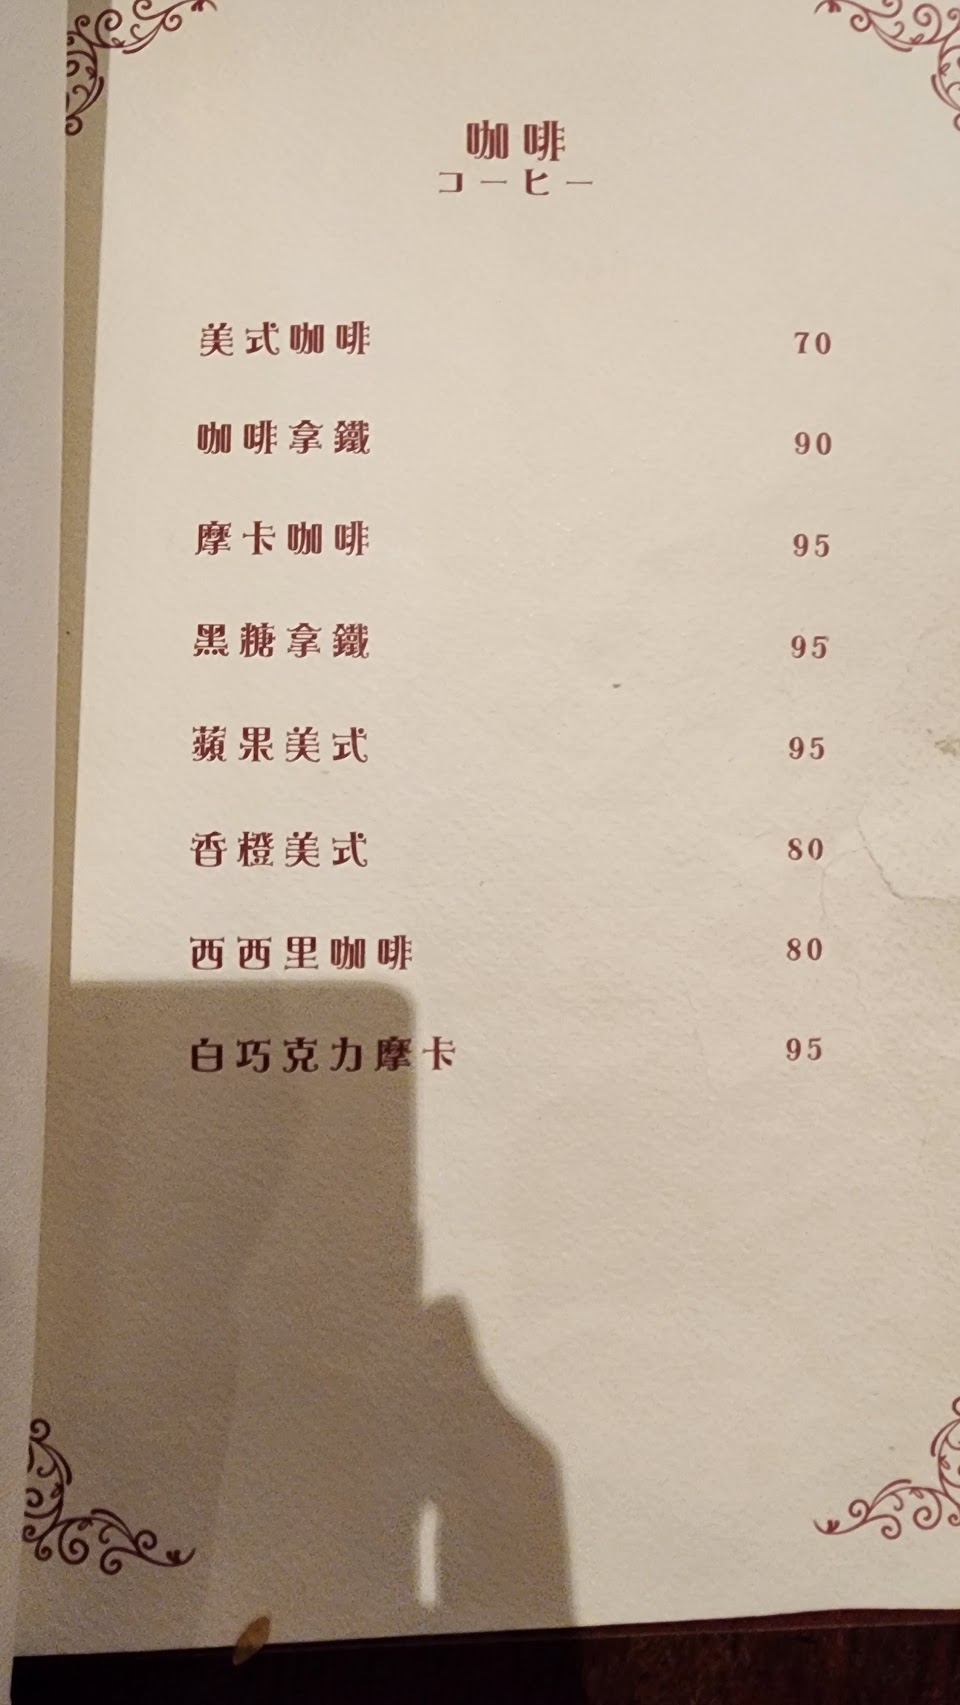 咖啡
コーヒー
美式咖啡 70
咖啡拿鐵 90
摩卡咖啡 95
黑糖拿鐵 95
蘋果美式 95
香橙美式 80
西西里咖啡 80
白巧克力摩卡 95